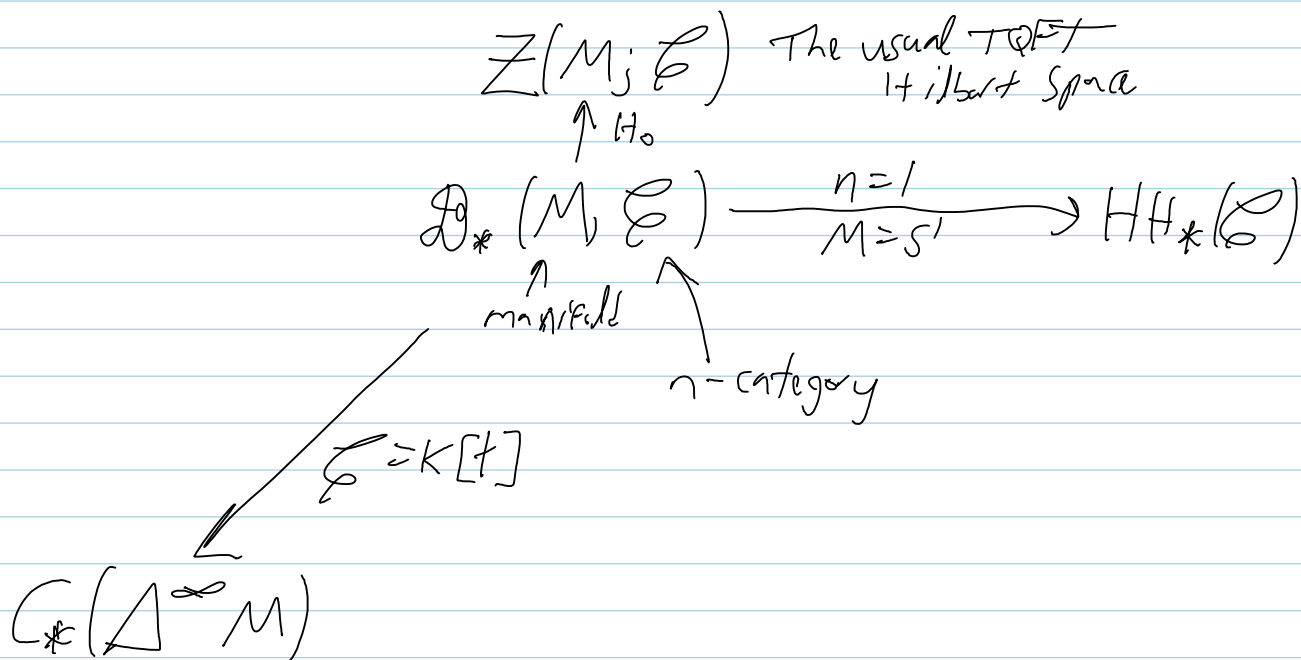 Z(M; 𝒞) The usual TQFT
Hilbert Space
↑ H₀
ℬ_*(M, 𝒞) —n=1 / M=S¹→ HH_*(𝒞)
manifold
n-category
𝒞=K[t]
C_*(Δ^∞ M)